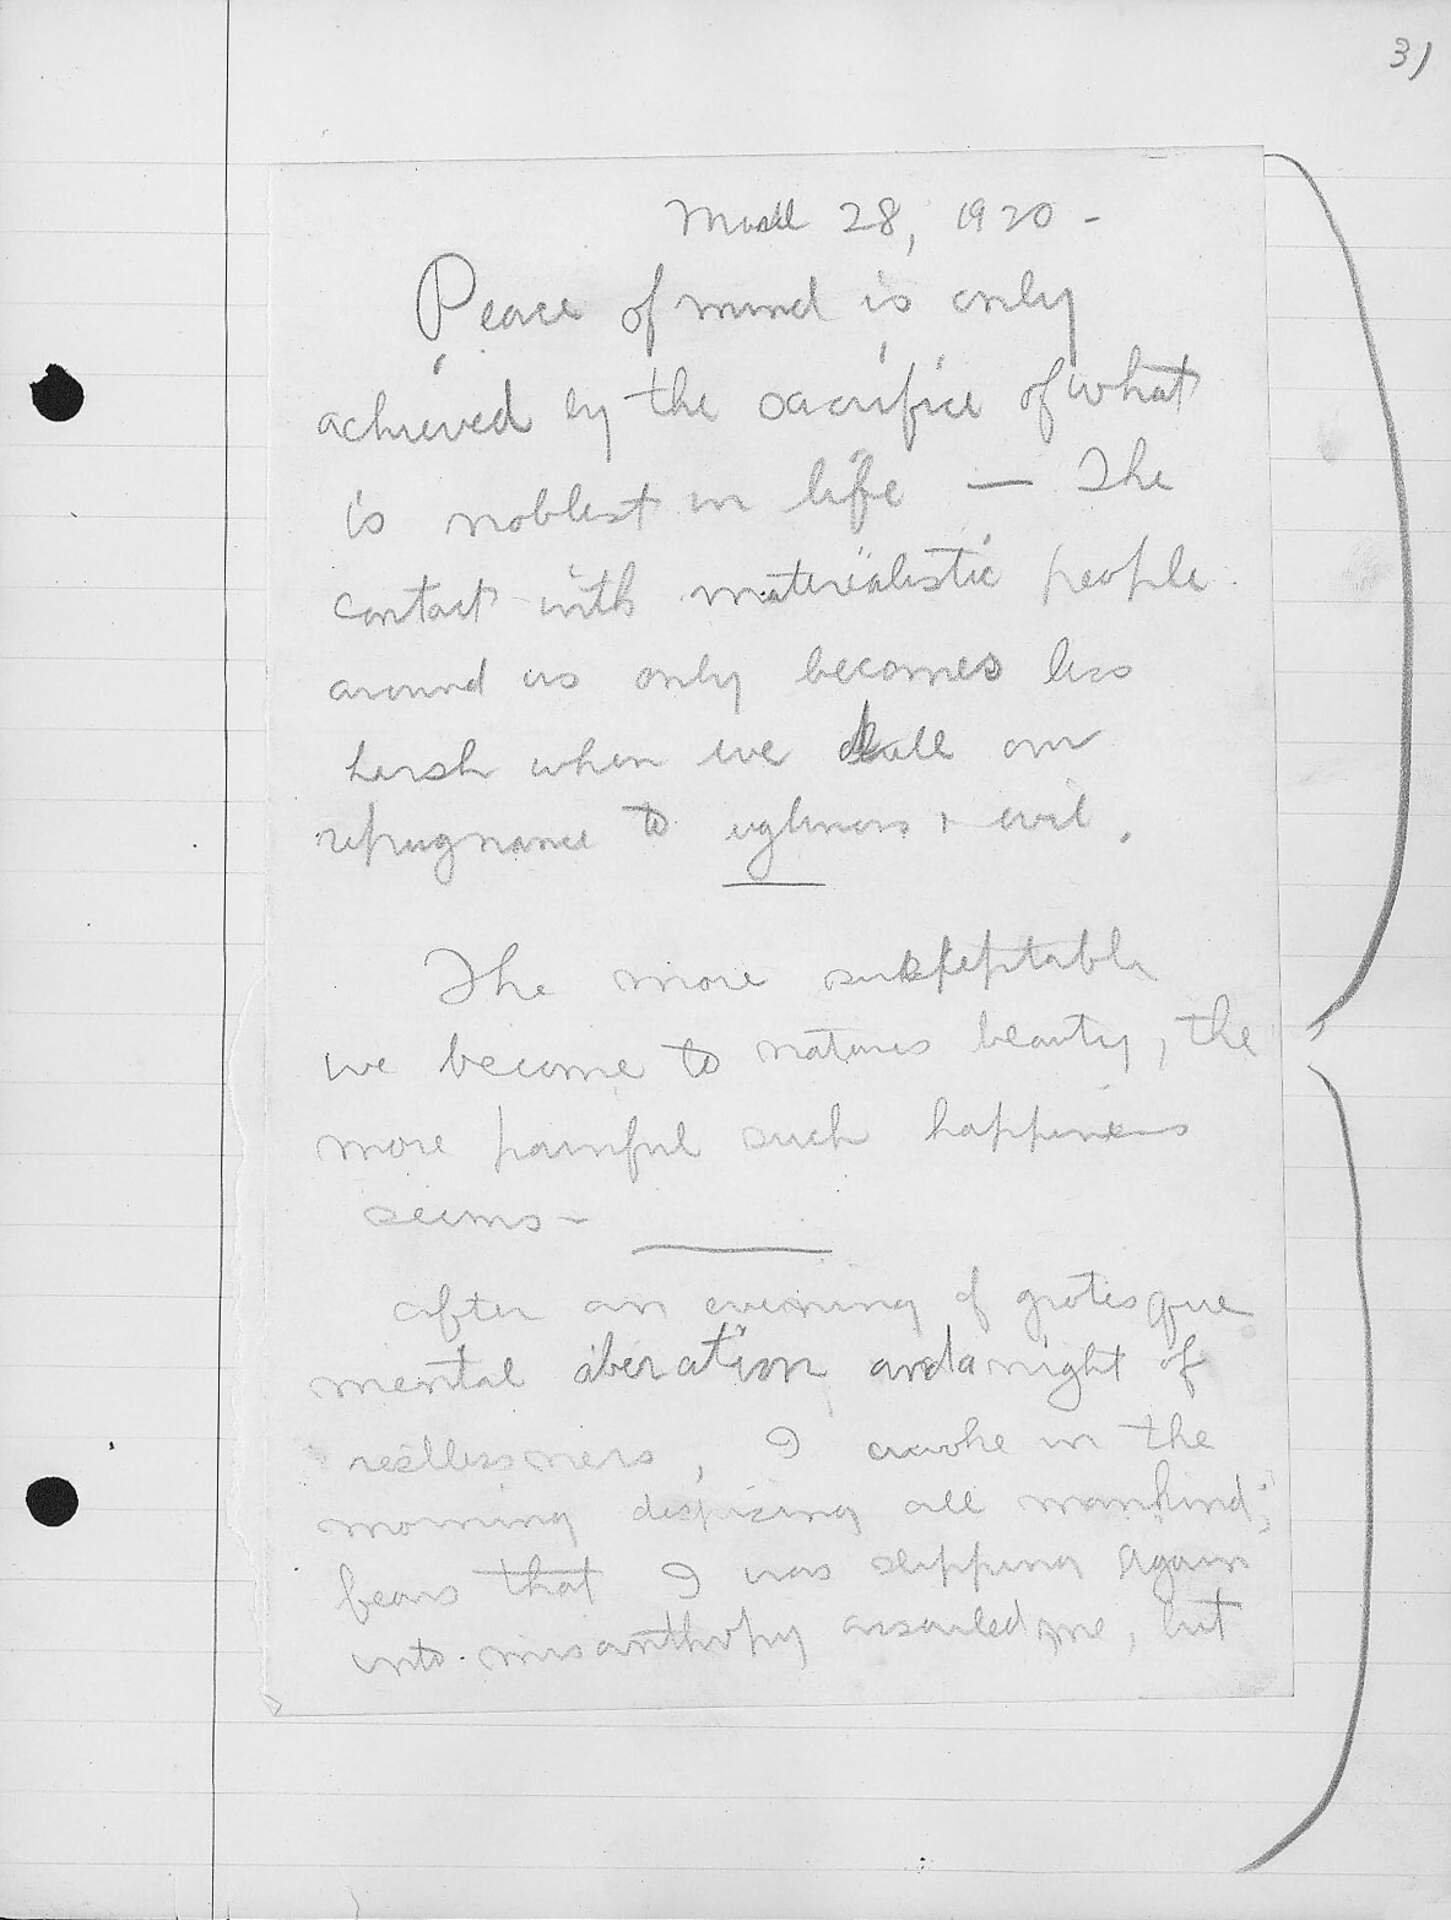 31
March 28, 1920 -
Peace of mind is only
achieved by the sacrifice of what
is noblest in life — The
contact with materialistic people
around us only becomes less
harsh when we dull our
repugnance to ugliness + evil.
The more suseptable
we become to natures beauty, the
more painful such happiness
seems -
After an evening of grotesque
mental aberation and a night of
restlessness, I awoke in the
morning despising all mankind;
fears that I was slipping again
into misanthropy assailed me, but